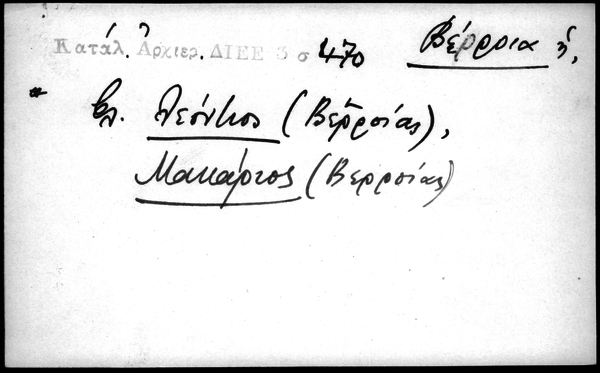 Κατάλ. Ἀρχιερ. ΔΙΕΕ 3 σ 470 Βέρροια ἡ,
* βλ. Λεόντιος (Βερροίας),
Μακάριος (Βερροίας)